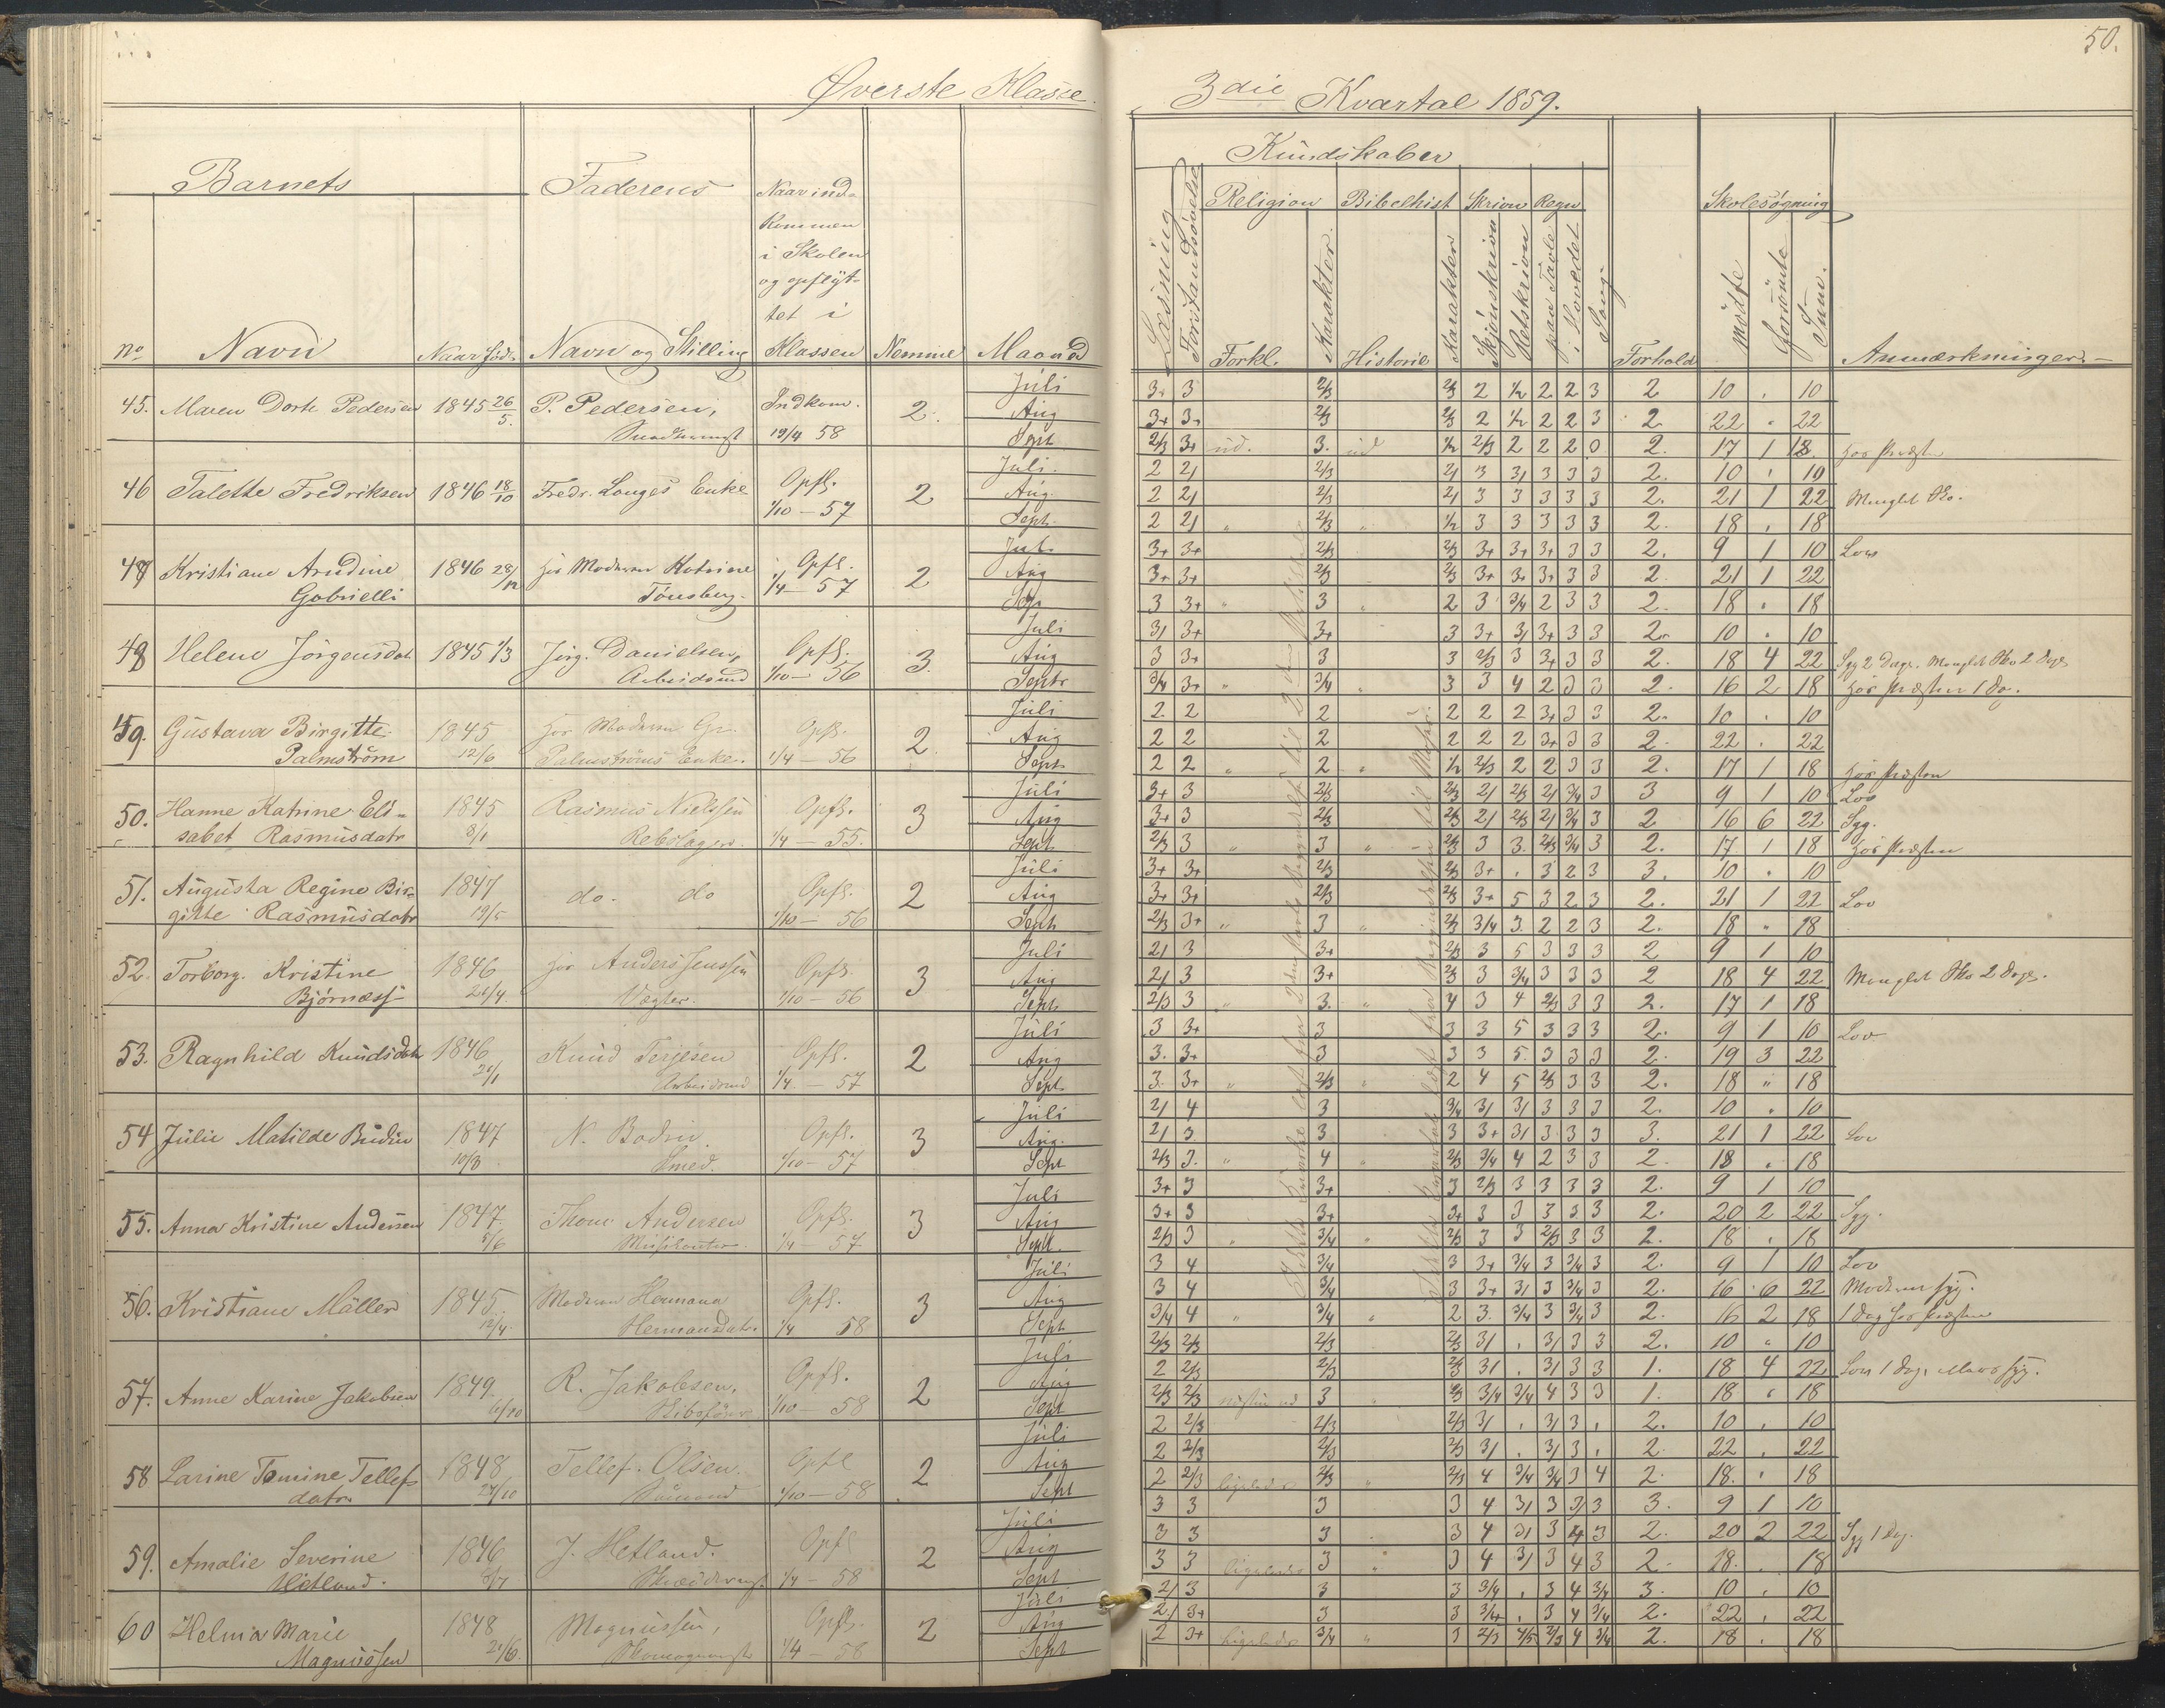 Øverste Klasse.
Barnets
Faderens
Naar ind-
kommen
i Skolen
og opflyt-
tet i
Klassen
No
Navn
Naar född
Navn og Stilling
Nemme
Maaned
45. Maren Dorte Pedersen 1845 26/5. P. Pedersen, Indkom. 19/4 58 2. Juli Aug Sept
46 Talette Fredriksen 1846 18/10 Fredr. Longes Enke Opfl. 1/10 - 57 2 Juli. Aug. Sept.
47 Kristiane Arndine Gobrielli 1846 28/12 hos Moderen Katrine Tönsberg. Opfl. 1/4 - 57 2 Juli Aug Sept
48 Helene Jörgensdat 1845 1/3 Jörg. Danielsen, Arbeidsmd Opfl. 1/10 - 56 3. Juli Aug Septr
49. Gustava Birgitte Palmström 1845 12/6 hos Moderen Gr. Palmströms Enke. Opfl. 1/4 - 56 2. Juli Aug Sept
50. Hanne Katrine Eli=
sabet Rasmusdatr 1845 8/1 Rasmus Nielssen Rebslager. Opfl. 1/4 - 55. 3 Juli Aug Sept
51. Augusta Regine Bir=
gitte Rasmusdatr 1847 19/5 do. do Opfl. 1/10 - 56 2 Juli Aug Sept
52. Torborg Kristine Björness 1846 21/4. hos Anders Jenssen Vægter. Opfl. 1/10 - 56 3 Juli Aug Sept
53. Ragnhild Knudsdatr 1846 21/1 Knud Terjesen Arbeidsmd Opfl. 1/4 - 57 2 Juli Aug Sept
54 Julie Matilde Budin 1847 10/8 N. Bodin Smed. Opfl. 1/10 - 57 3 Juli Aug. Sept
55. Anna Kristine Andersen 1847. 5/6 Thom. Andersen Musikanter Opfl. 1/4 - 57 3 Juli Aug Sept.
56. Kristiane Möller 1845. 12/4. Moderen Hermana Hermansdatr. Opfl. 1/4 58 3 Juli Aug Sept
57. Anne Karine Jakobsen 1849. 6/10 R. Jakobsen. Opfl. 1/10 - 58 2 Juli Aug Sept
58 Larine Tomine Tellefs
datr. 1848 27/10 Tellef. Olsen. Sömand Opfl 1/10 - 58 2 Juli Aug Sept
59. Amalie Severine Hetland. 1846 J. Hetland. Opfl 1/4 - 58 2 Juli Aug Sept
60 Helma Marie Magnussen 1848 21/6. Magnussen, Opfl. 1/4 - 58 2 Juli Aug Sept
50.
3die Kvartal 1859.
Kundskaber
Læsning
Forstandsövelse
Religion
Bibelhist
Skrivn
Regn
Skolesøgning
Forkl.
Karakter.
Historie
Karakter
Skjönskrivn
Retskrivn
paa Tavle
i Hovedet
Sang
Forhold
Mödte
Forsömte
Sum.
Anmærkninger.-
3+ 3 2/3 2/3 2 1/2 2 2 3 2 10 . 10
3+ 3+ 2/3 2/3 2 1/2 2 2 3 2. 22 . 22
2/3 3+ ud. 3. ud 1/2 2/3 2 2 2 0 2. 17 1 18 hos Præsten
2 2/ 2/3 2/ 3 3/ 3 3 3 2. 10 . 10
2 2/ 2/3 2/ 3 3 3 3 3 2. 21 1 22 Manglet Sko.
2 2/ " 2/3 " 1/2 3 3 3 3 3 2. 18 . 18
3+ 3+ 2/3 2/3 3+ 3+ 3+ 3 3 2. 9 1 10 Lov
3+ 3+ 2/3 2/3 3+ 3+ 3+ 3 3 2 21 1 22
3 3+ " 3 " 2 3 3/4 2 3 3 2. 18 . 18
3/ 3+ 3+ 3 3+ 3/ 3+ 3 3 2. 10 . 10
3 3+ 3 3 2/3 3 3+ 3 3 2. 18 4 22 Syg 2 Dage. Manglet Sko 2 Dage
3/4 3+ " 3/4 " 3 3 4 2 3 3 2. 16 2 18 hos Præsten 1 Dag.
2. 2 2 2 2 2 3+ 3 3 2. 10 . 10
2 2 2 2 2 2 3+ 3 3 2. 22 . 22
2 2 " 2 " 1/2 2/3 2 2 3 3 2. 17 1 18 hos Præsten
3+ 3 2/3 2/3 2/ 2/3 2/ 3/4 3 3 9 1 10 Lov
3+ 3 2/3 2/3 2/ 2/3 2/ 3/4 3 2 16 6 22 Syg.
2/3 3 " 3 " 2/3 3 3. 2/3 3/4 3 2. 17 1 18 hos Præsten
3+ 3+ 2/3 2/3 3+ . 3 2 3 3. 10 . 10
3+ 3+ 2/3 2/3 3+ 5 3 2 3 2. 21 1 22 Lov
2/3 3+ " 3 " 2/3 3/4 3. 2 2 3 2. 18 " 18
2/ 3 3+ 2/3 3 5 3 3 3 2 9 1 10
2/ 3 3+ 2/3 3 3/4 3 3 3 2 18 4 22 Manglet Sko 2 Dage.
2/3 3 " 3. " 4 3 4 2/3 3 3 2. 17 1 18
3 3+ 3 3 3 5 3 3 3 2. 9 1 10 Lov
3. 3+ 3 3 3 5. 3 3 3 2. 19 3 22
3. 3+ " 2/3 " 2 4 5 2/3 3 3 2. 18 " 18
2/ 4 3 3/4 3/ 3/ 3 3 3 2. 10 . 10
2/ 3 3 3 3+ 3/ 3 3 3 3. 21 1 22 Lov
2/3 3. " 4 " 2/3 3/4 4 2 3 3 2. 18 . 18
3+ 3 3+ 3 2/3 3 3 3 3 2. 9 1 10
3+ 3 3+ 3+ 3 3 3 3 3 2. 20 2 22 Syg.
2/3 3 " 3/4 " 2/3 3 3 2/3 3 3 2. 18 . 18
3 4 3/4 3 3+ 3/4 3 3/4 3 2. 9 1 10 Lov
3 4 3/4 3 3+ 3/ 3 3/4 3 2. 16 6 22 Moderen syg.
3/4 4 " 3/4 " 2 3. 3/4 3 3/4 3 2. 16 2 18 1 Dag hos Præsten
2/3 2/3 2/3 2/3 3/ . 3/ 3 3 2. 10 " 10
2 2/3 2/3 2/3 3/ . 3/ 3 3 1. 18 4 22 Lov 1 Dag. syg.
2/3 2/3 næsten ud 3 " 2/3 3/4 3/4 4 3 3 1. 18 . 18
2 2/3 2/3 2/3 3/ . 3/ 3 . 2. 10 . 10
2 2/3 2/3 2/3 3/ . 3/ 3 . 2 22 . 22
2 2/3 ligeledes 2/3 " 2/3 4 3/4 3/4 3 4 2. 18. . 18
3 3 3 3 4 3/ 3 3/ 3 3. 9 1 10
3 3 3 3 4 3/ 3 4 3 2. 20 2 22 Syg 1 Dag.
3 3 ligeledes 3 " 3 4 3/ 3 4 3 2. 18. . 18
2/ 3 3 3 3/4 . 3 4 3/4 3. 10 . 10
2/ 3+ 3 3 3/4 . 3 4 3/4 2. 22 . 22
2 3+ ligeledes 3/4 " 3 2/3 4/5 2/3 4 3/4 2. 18 . 18